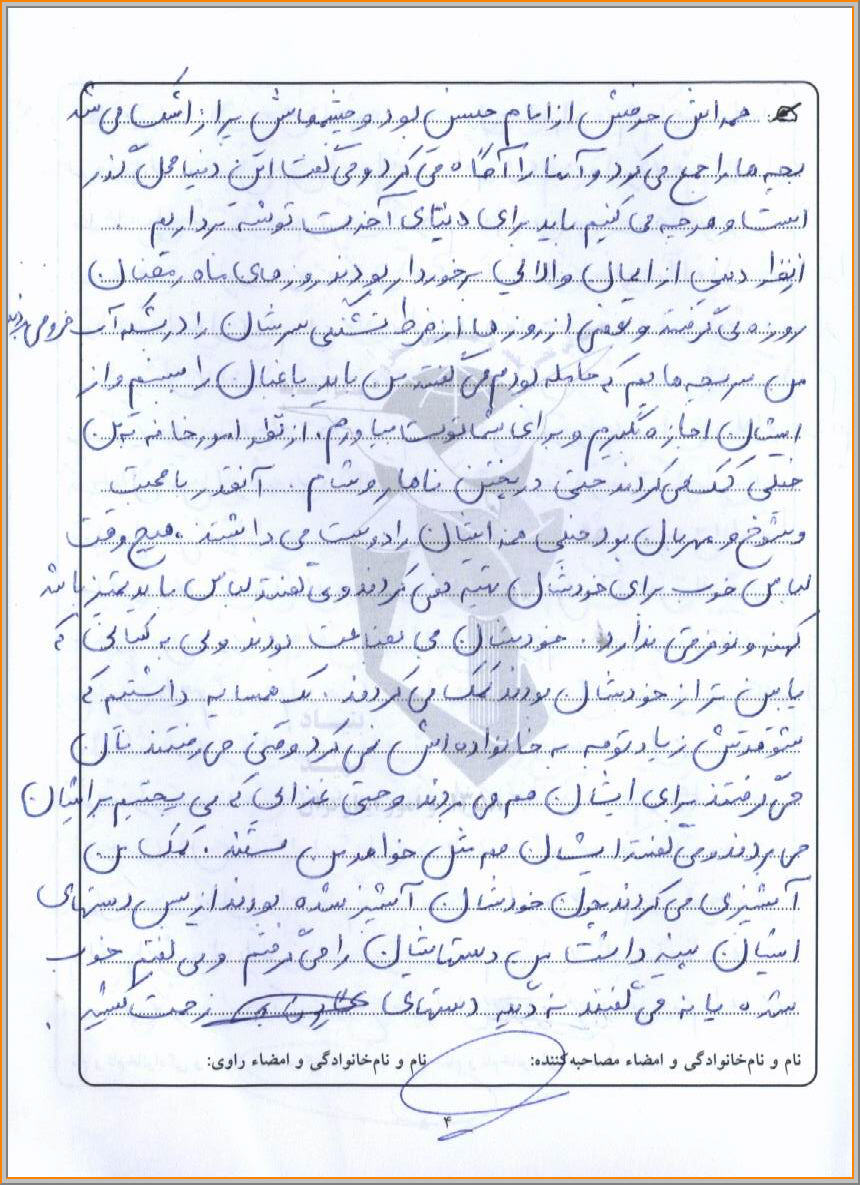 همه اش حرفش از امام حسین بود و چشمهاش پر از اشک می شد
بچه ها را جمع می کرد و آنها را آگاه می کرد و می گفت این دنیا محل گذر
است و هر چه می کنیم باید برای دنیای آخرت توشه برداریم .
ازنظر دینی از ایمان والایی برخوردار بودند روزهای ماه رمضان
روزه می گرفتند و بعضی از روزها از فرط تشنگی سرشان را در تشت آب فرو می بردند
من سر بچه هایم که حامله بودم می گفتند من باید باغبان را ببینم و از
ایشان اجازه بگیرم و برای شما توت بیاورم . از نظر امور خانه به من
خیلی کمک می کردند حتی در پختن ناهار و شام . آنقدر با محبت
و شوخ و مهربان بود خیلی همه ایشان را دوست می داشتند ، هیچ وقت
لباس خوب برای خودشان تهیه نمی کردند و می گفتند لباس باید تمیز باشد
کهنه و نو فرقی ندارد . خودشان می بقناعت بودند ولی به کسانی که
پایین تر از خودشان بودند کمک می کردند . یک همسایه داشتیم که
شوهرش زیاد توجه به خانواده اش نمی کرد وقتی می رفتند نان
می گرفتند برای ایشان هم می بردند و حتی غذایی که می پختیم برایشان
می بردند و می گفتند ایشان هم مثل خواهر من هستند . کمک من
آشپزی می کردند چون خودشان آشپز شده بودند از بس دستهای
ایشان پینه داشت من دستهایشان را می گرفتم و می گفتم خوب
شده یا نه می گفتند نه دیگه دستهای زحمت کشیده
نام و نام‌خانوادگی و امضاء مصاحبه‌کننده: نام و نام‌خانوادگی و امضاء راوی:
۴